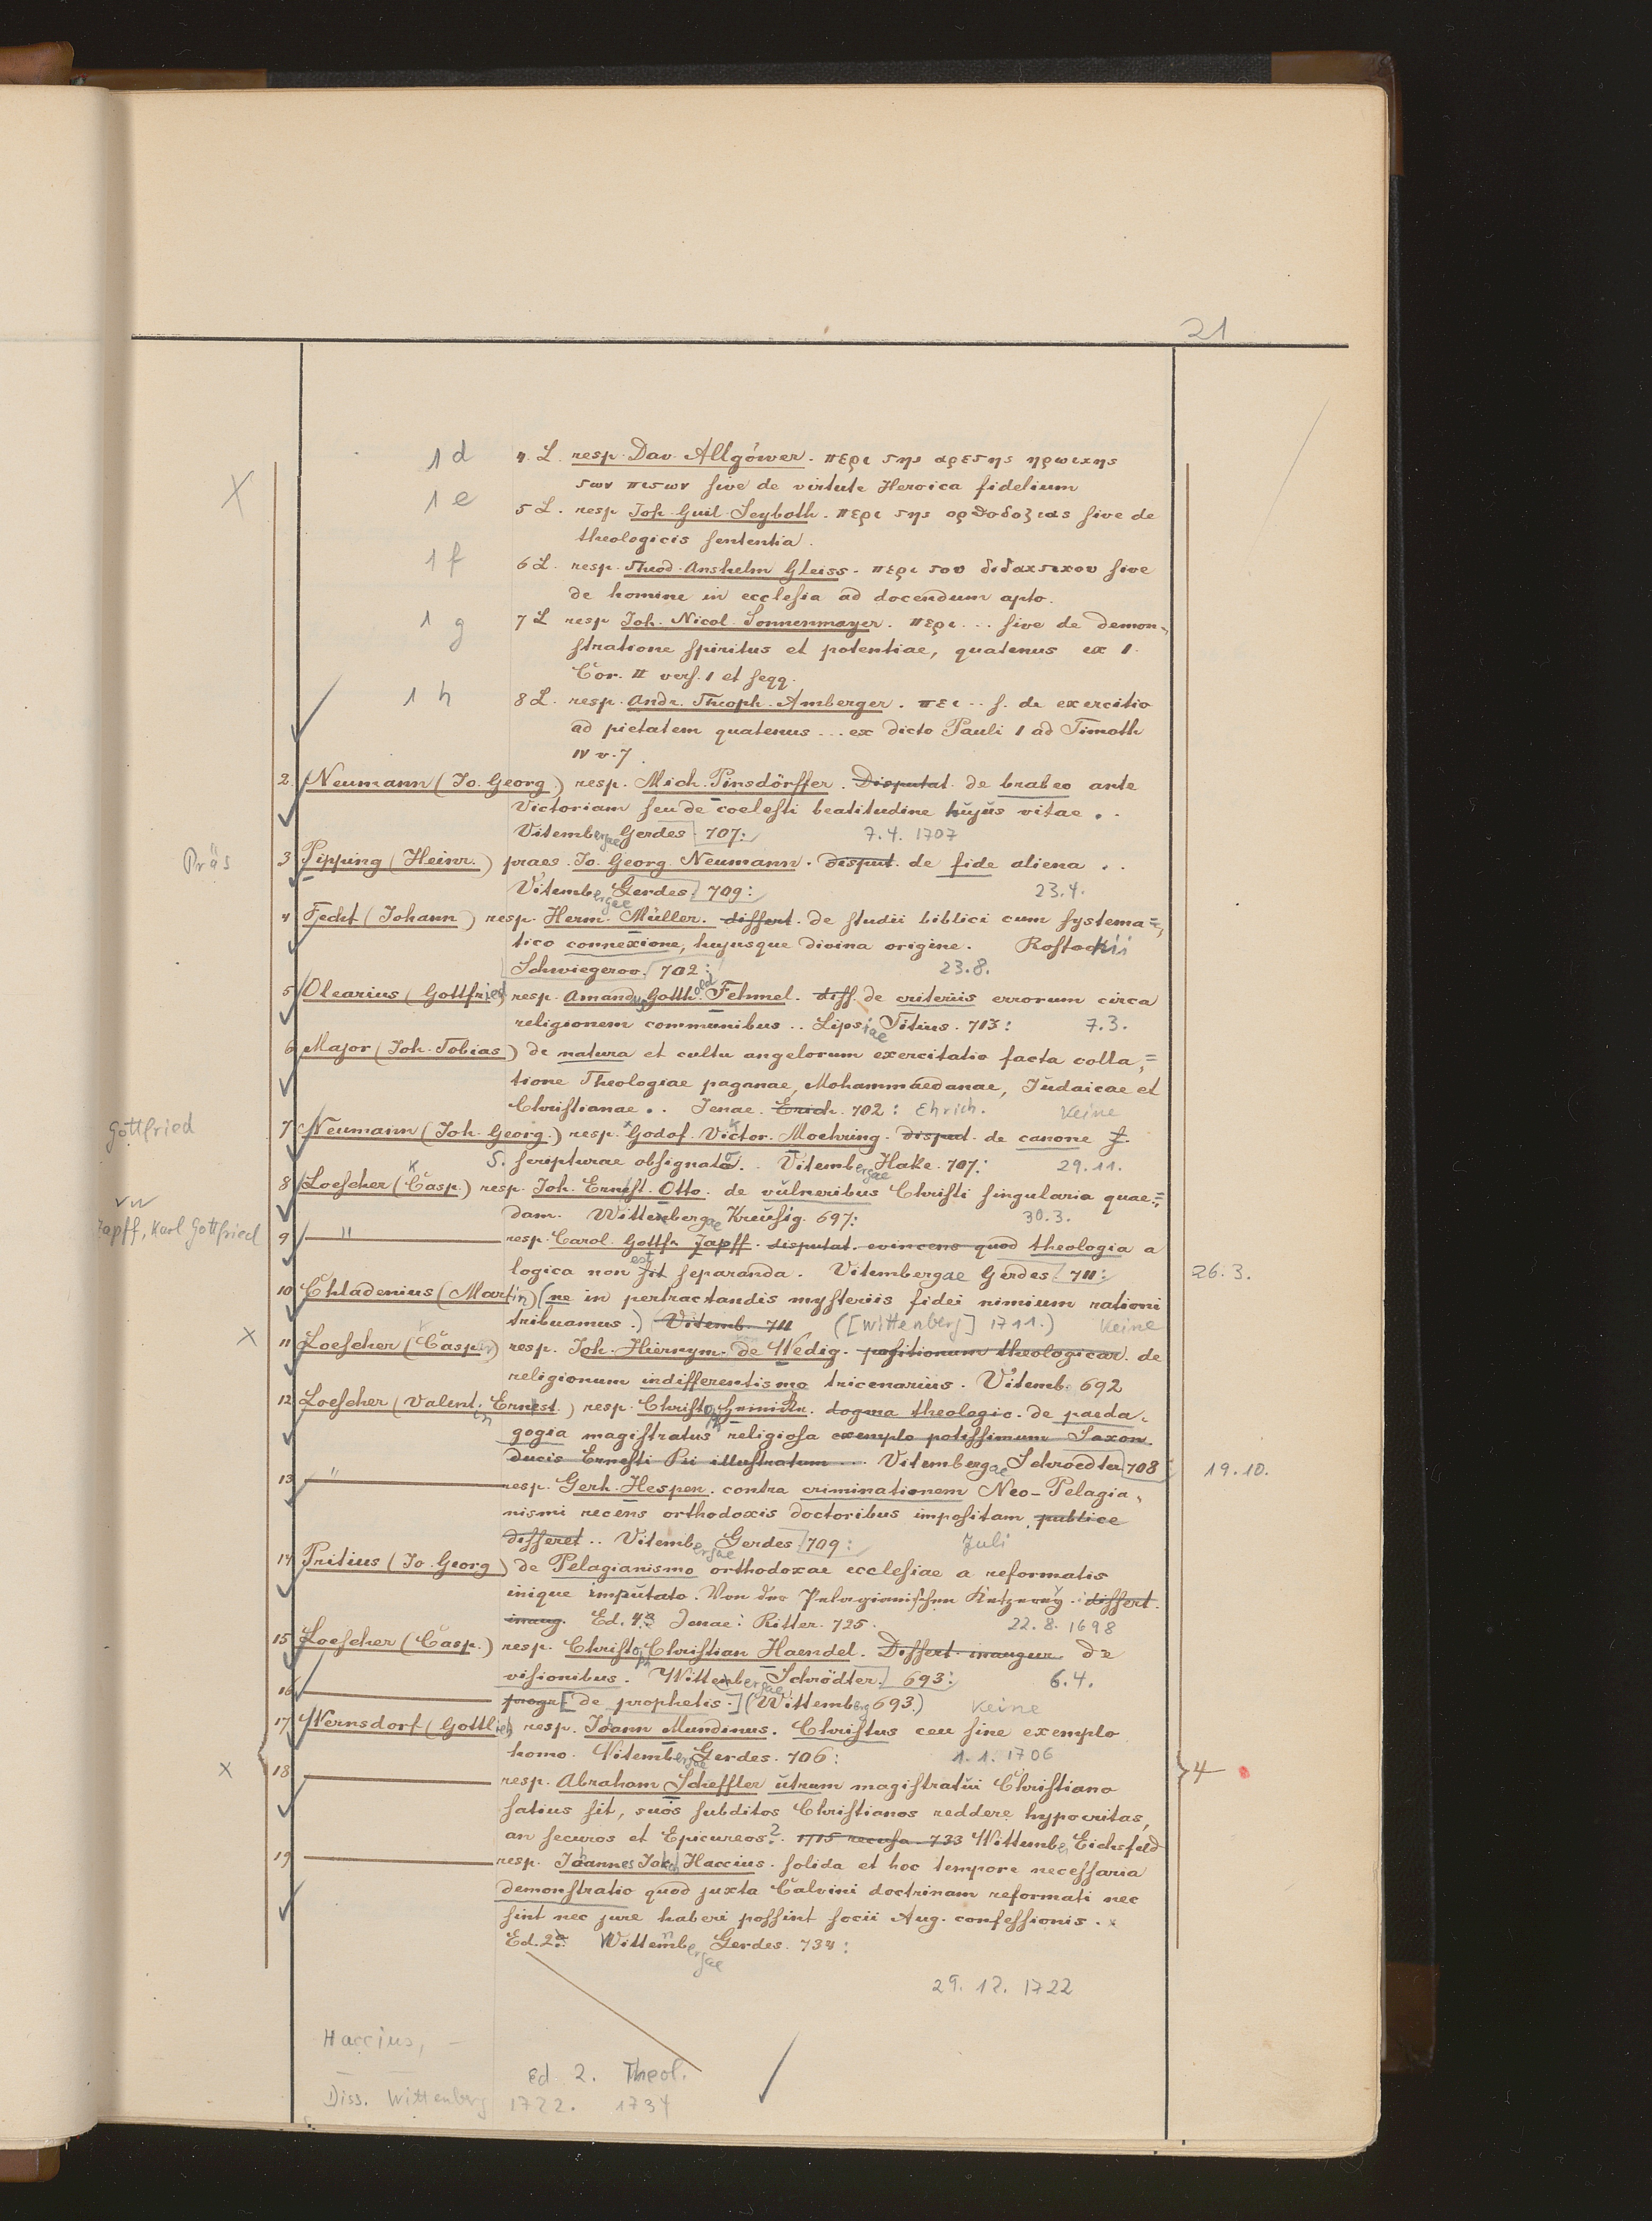 21
1 d 4. L. resp. Dav. Allgöwer. περι της αρετης ηρωικης
των πισων sive de virtute Heroica fidelium
1 e 5 L. resp Joh. Guil. Seyboth. περι της ορθοδοξιας sive de
theologicis sententia.
1 f 6 L. resp. Theod. Anshelm Gleiss. περι του διδακτικου sive
de homine in ecclesia ad docendum apto.
1 g 7 L resp Joh. Nicol. Sonnenmayer. περι... sive de demon-
stratione spiritus et potentiae, quatenus ex 1.
Cor. II vers. 1 et seqq.
1 h 8 L. resp. Andr. Theoph. Amberger. πει... s. de exercitio
ad pietatem quatenus... ex dicto Pauli 1 ad Timoth
IV v. 7.
2 Neumann (Jo. Georg.) resp. Mich. Pinsdörffer. Disputat. de brabeo ante
Victoriam seu de coelesti beatitudine hujus vitae..
Vitembergae Gerdes 707: 7.4. 1707
Präs 3 Pipping (Heinr.) praes. Jo. Georg. Neumann. disput. de fide aliena..
Vitembergae Gerdes. 709: 23.4.
4 Fecht (Johann) resp. Herm. Müller. dissert. de studii biblici cum systema=
tico connexione, hujusque divina origine. Rostockii
Schwiegerov. 702: 23.8.
5 Olearius (Gottfried) resp. Amandus Gotthold Fehmel. diss. de criteriis errorum circa
religionem communibus.. Lipsiae Titius. 713: 7.3.
6 Major (Joh. Tobias) de natura et cultu angelorum exercitatio facta colla=
tione Theologiae paganae, Mohammaedanae, Judaicae et
Christianae.. Jenae. Erich. 702: Ehrich. Keine
Gottfried 7 Neumann (Joh. Georg.) resp. Godof. Victor. Moehring. disput. de canone S.
S. scripturae obsignato.. Vitembergae Hake. 707: 29.11.
8 Loescher (Casp.) resp. Joh. Ernst. Otto. de vulneribus Christi singularia quae=
K
dam. Wittenbergae Kreusig. 697: 30.3.
vw
Zapff, Karl Gottfried 9 " resp. Carol. Gottfr. Zapff. disputat. evincens quod theologia a
logica non sit est separanda. Vitembergae Gerdes 711: 26.3.
10 Chladenius (Martin) (ne in pertractandis mysteriis fidei nimium rationi
tribuamus.) Vitemb. 711 ([Wittenberg] 1711.) Keine
11 Loescher (Casper) resp. Joh. Hieronym. de von Wedig. positionum theologicar. de
religionum indifferentismo tricenarius. Vitemb. 692
12 Loescher (Valentin Ernest.) resp. Christoph dogma theologic. de paeda-
gogia magistratus religiosa exemplo potissimum Saxon.
ducis Ernesti Pii illustratum... Vitembergae Schroedter 708 19.10.
13 " resp. Gerh. Hespen. contra criminationem Neo-Pelagia-
nismi recens orthodoxis doctoribus impositam publice
disseret.. Vitembergae Gerdes 709: Juli
14 Pritius (Jo. Georg) de Pelagianismo orthodoxae ecclesiae a reformatis
inique imputato. Von der Pelagianischen Ketzerey. dissert.
inaug. Ed. 4a Jenae: Ritter. 725. 22.8. 1698
15 Loescher (Casp.) resp. Christoph Christian Haendel. Dissert. inaugur de
visionibus. Wittenbergae Schrödter 693: 6.4.
16 progr [de prophetis.] (Wittemberg 693.) Keine
17 Wernsdorf (Gottlieb) resp. Johann Mundinus. Christus ceu sine exemplo
homo. Vitembergae Gerdes. 706: 1.1. 1706
18 resp. Abraham Scheffler utrum magistratui Christiano 4
satius sit, suos subditos Christianos reddere hypocritas,
an securos et Epicureos?. 1715 recusa 733 Wittembe, Eichsfeld
19 resp. Johannes Jacob Haccius. solida et hoc tempore necessaria
demonstratio quod juxta Calvini doctrinam reformati nec
sint nec jure haberi possint socii Aug. confessionis.
Ed. 2a: Wittembergae Gerdes. 734:
29. 12. 1722
Haccius, —
Ed 2. Theol.
Diss. Wittenberg 1722. 1734